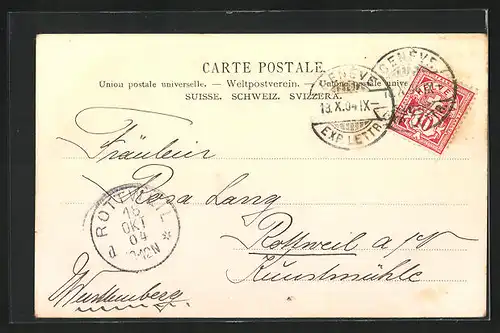 CARTE POSTALE.
Union postale universelle. — Weltpostverein. — Unione postale universale
SUISSE. SCHWEIZ. SVIZZERA.
GENÈVE
18.X.04 IX—
EXP. LETTR.
GENÈVE
10
Fräulein
Rosa Lang
Rottweil a/N
Kunstmühle
Württemberg
ROTTWEIL
OKT
04